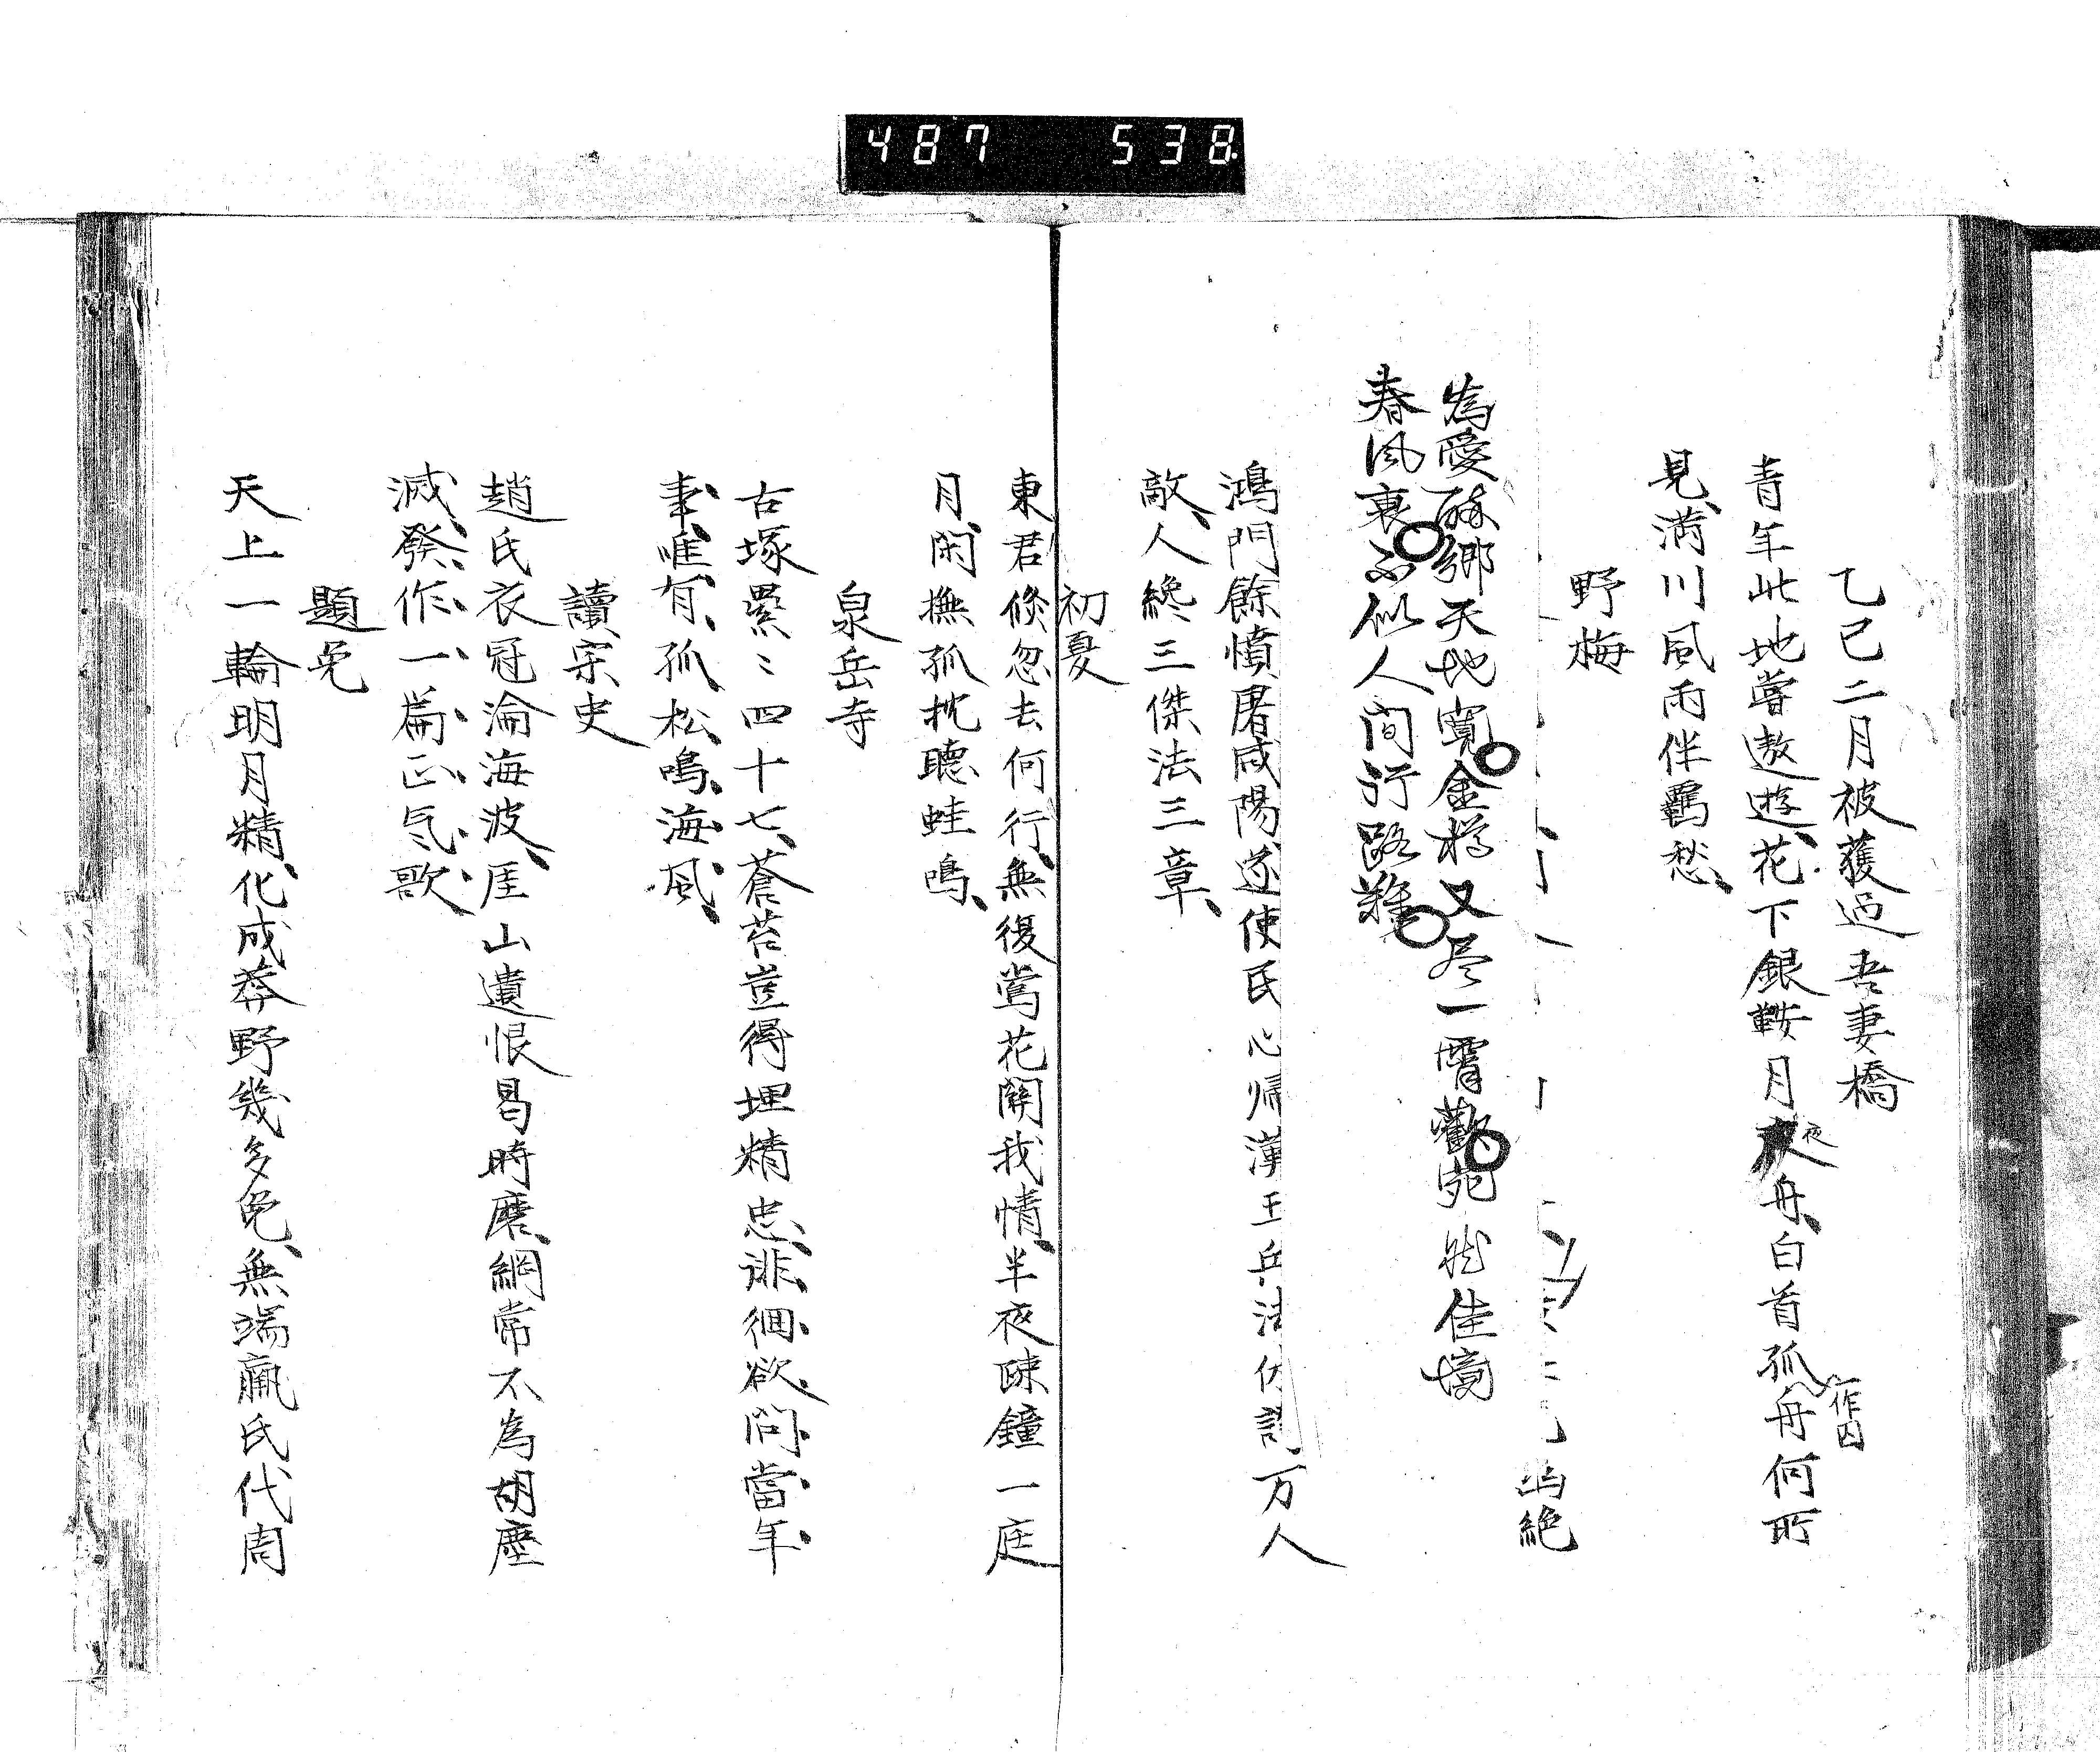 487 538
乙巳二月被獲過吾妻橋
青年此地嘗遨遊、花下銀鞍月夜舟、白首孤舟何所
夜
一作囚
見、満川風雨伴羈愁、
野梅
幽絶
為愛酥郷天地寛金樽又尽一宵歡宛然佳境
春風裏不似人間行路難
鴻門餘憤屠咸陽、遂使民心帰漢王兵法 万人
敵、人纔三傑法三章、
初夏
東君倐忽去何行、無復鶯花關我情、半夜疎鐘一庭
月、閑撫孤枕聴蛙鳴、
泉岳寺
古塚纍〻四十七、蒼苔豈得埋精忠、徘徊欲問當年
事、唯有孤松鳴海風、
讀宋史
趙氏衣冠淪海波、厓山遺恨曷時磨、網常不為胡塵
滅、發作一篇正気歌
題兎
天上一輪明月精、化成莽野幾多兎、無端嬴氏代周